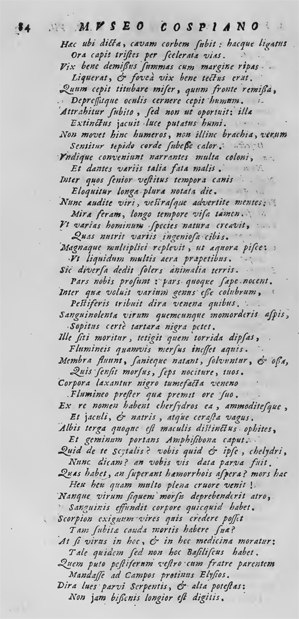 84 MVSEO COSPIANO
Hac ubi dicta, cavam corbem subit: hacque ligatus
Ora capit tristes per scelerata vias.
Vix bene demissus summas cum margine ripas
Liquerat, & fovea vix bene tectus erat.
Quum cepit titubare miser, quum fronte remissa,
Depressisque oculis cernere cepit humum.
Attrahitur subito, sed non ut oportuit: illa
Extinctus jacuit luce putatus humi.
Non movet hinc humeros, non illinc brachia, verum
Sentitur tepido corde subesse calor.
Undique conveniunt narrantes multa coloni,
Et dantes variis talia fata malis.
Inter quos senior vestitus tempora canis
Eloquitur longa plura notata die.
Nunc audite viri, vestrasque advertite mentes;
Mira feram, longo tempore visa tamen.
Ut varias hominum species natura creavit,
Quas nutrit variis ingeniosa cibis.
Magnaque multiplici replevit, ut aquora pisce:
Ut liquidum multis aera præpetibus.
Sic diversa dedit solers animalia terris.
Pars nobis prosunt: pars quoque sæpe nocent.
Inter quæ voluit varium genus esse colubrum,
Pestiferis tribuit dira venena quibus.
Sanguinolenta virum quemcunque momorderit aspis,
Sopitus certè tartara nigra petet.
Ille siti moritur, tetigit quem torrida dipsas,
Flumineis quamvis mersus inesset aquis.
Membra fluunt, saniéque natant, solvuntur, & ossa,
Quis sensit morsus, seps nociture, tuos.
Corpora laxantur nigro tumefacta veneno
Flumineo prester quæ premit ore suo.
Ex re nomen habent chersydros ea, ammoditesque,
Et jaculi, & natrix, atque cerasta vagus.
Albis terga quoque est maculis distinctus ophites,
Et geminum portans Amphisbona caput.
Quid de te scytalis? vobis quid & ipse, chelydri,
Nunc dicam? an vobis vis data parva fuit.
Quas habet, an superant hamorrhois aspera? mors hac
Heu heu quam multo plena cruore venit!
Nanque virum siquem morsu deprehenderit atro,
Sanguinis effundit corpore quicquid habet.
Scorpion exiguum vires quis credere possit
Tam subita cauda mortis habere sua?
At si virus in hoc, & in hoc medicina moratur:
Tale quidem sed non hoc Basiliscus habet.
Quem puto pestiferum vestro cum fratre parentem
Mandasse ad Campos protinus Elysios.
Dira lues parvi Serpentis, & alta potestas:
Non jam bissenis longior est digitis.